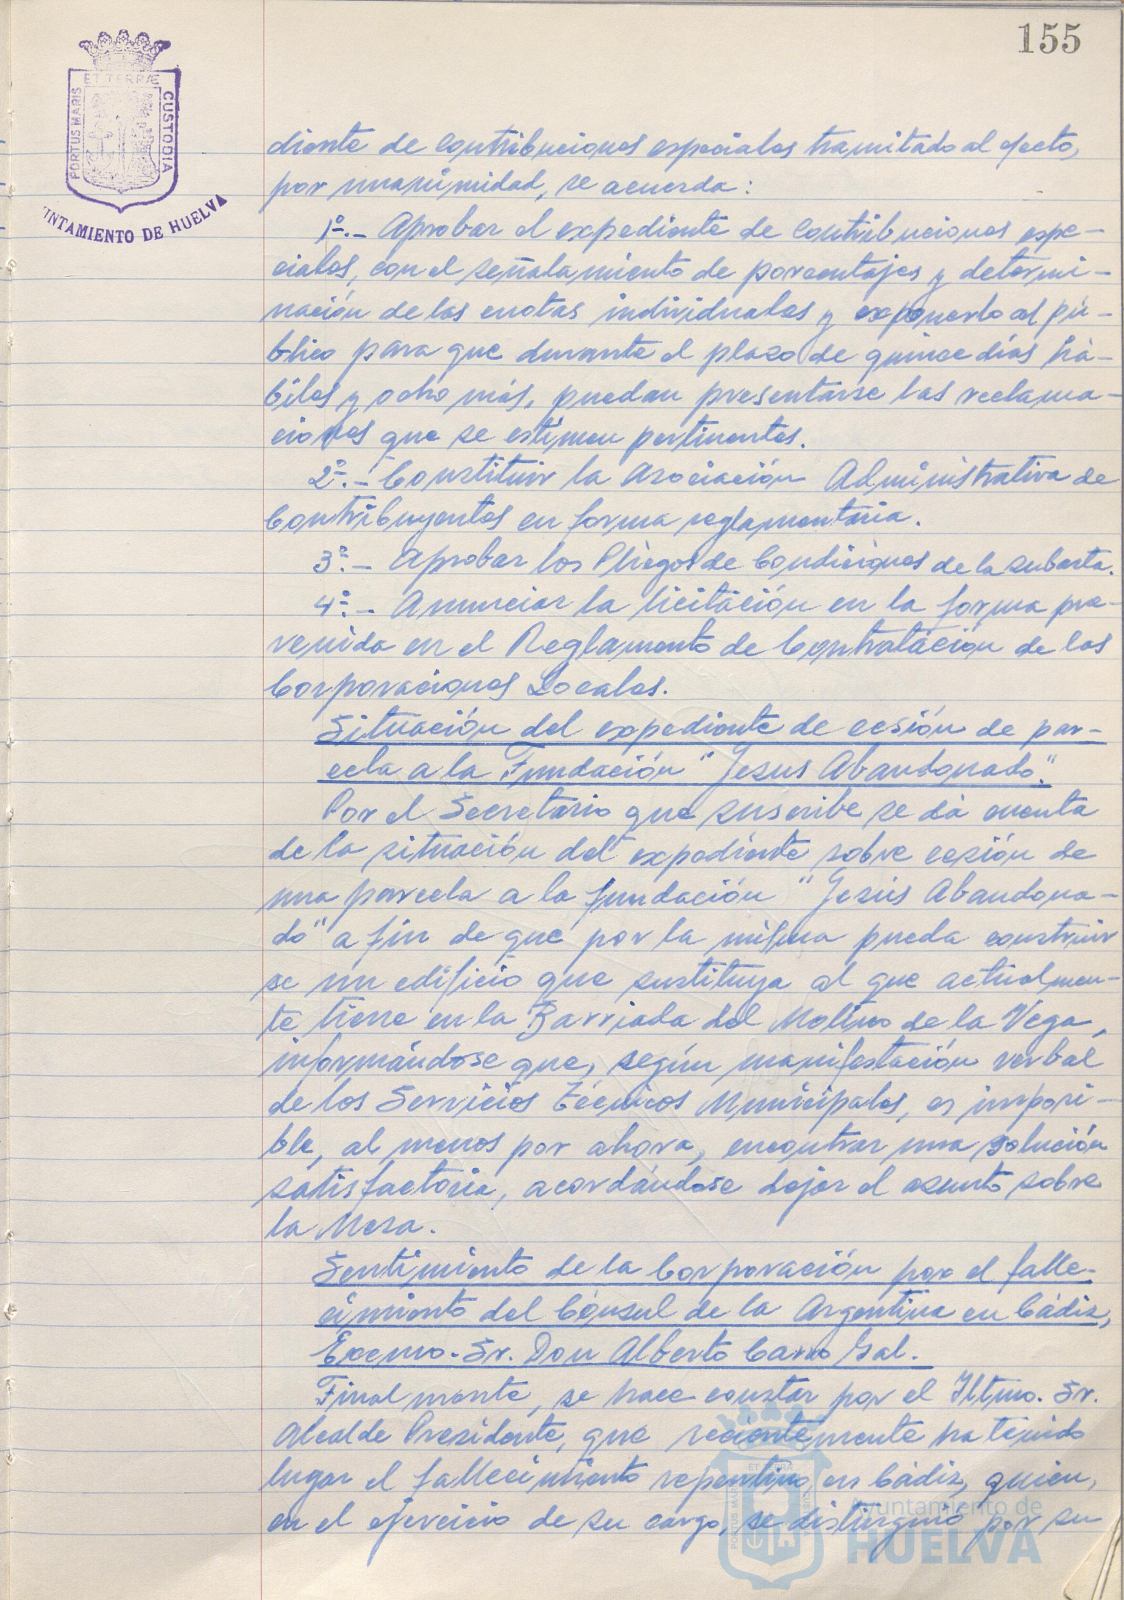 155
ET TERRÆ
PORTUS MARIS
CUSTODIA
UNTAMIENTO DE HUELVA
diente de contribuciones especiales tramitado al efecto,
por unanimidad, se acuerda:
1º.- Aprobar el expediente de contribuciones espe-
ciales, con el señalamiento de porcentajes y determi-
nación de las cuotas individuales y exponerlo al pú-
blico para que durante el plazo de quince días há-
biles y ocho más, puedan presentarse las reclama-
ciones que se estimen pertinentes.
2º.- Constituir la Asociación Administrativa de
Contribuyentes en forma reglamentaria.
3º.- Aprobar los Pliegos de Condiciones de la subasta.
4º.- Anunciar la licitación en la forma pre-
venida en el Reglamento de Contratación de las
Corporaciones Locales.
Situación del expediente de cesión de par-
cela a la Fundación "Jesus Abandonado".
Por el Secretario que suscribe se dá cuenta
de la situación del expediente sobre cesión de
una parcela a la fundación "Jesús Abandona-
do" a fin de que por la misma pueda construir
se un edificio que sustituya al que actualmen-
te tiene en la Barriada del Molino de la Vega,
informándose que, según manifestación verbal
de los Servicios Técnicos Municipales, es imposi-
ble, al menos por ahora, encontrar una solución
satisfactoria, acordandose dejar el asunto sobre
la Mesa.
Sentimiento de la Corporación por el falle-
cimiento del Cónsul de la Argentina en Cádiz,
Excmo. Sr. Don Alberto Carro Gal.
Finalmente, se hace constar por el Iltmo. Sr.
Alcalde Presidente, que recientemente ha tenido
lugar el fallecimiento repentino, en Cádiz, quien,
en el ejercicio de su cargo, se distinguió por su
Ayuntamiento de
HUELVA